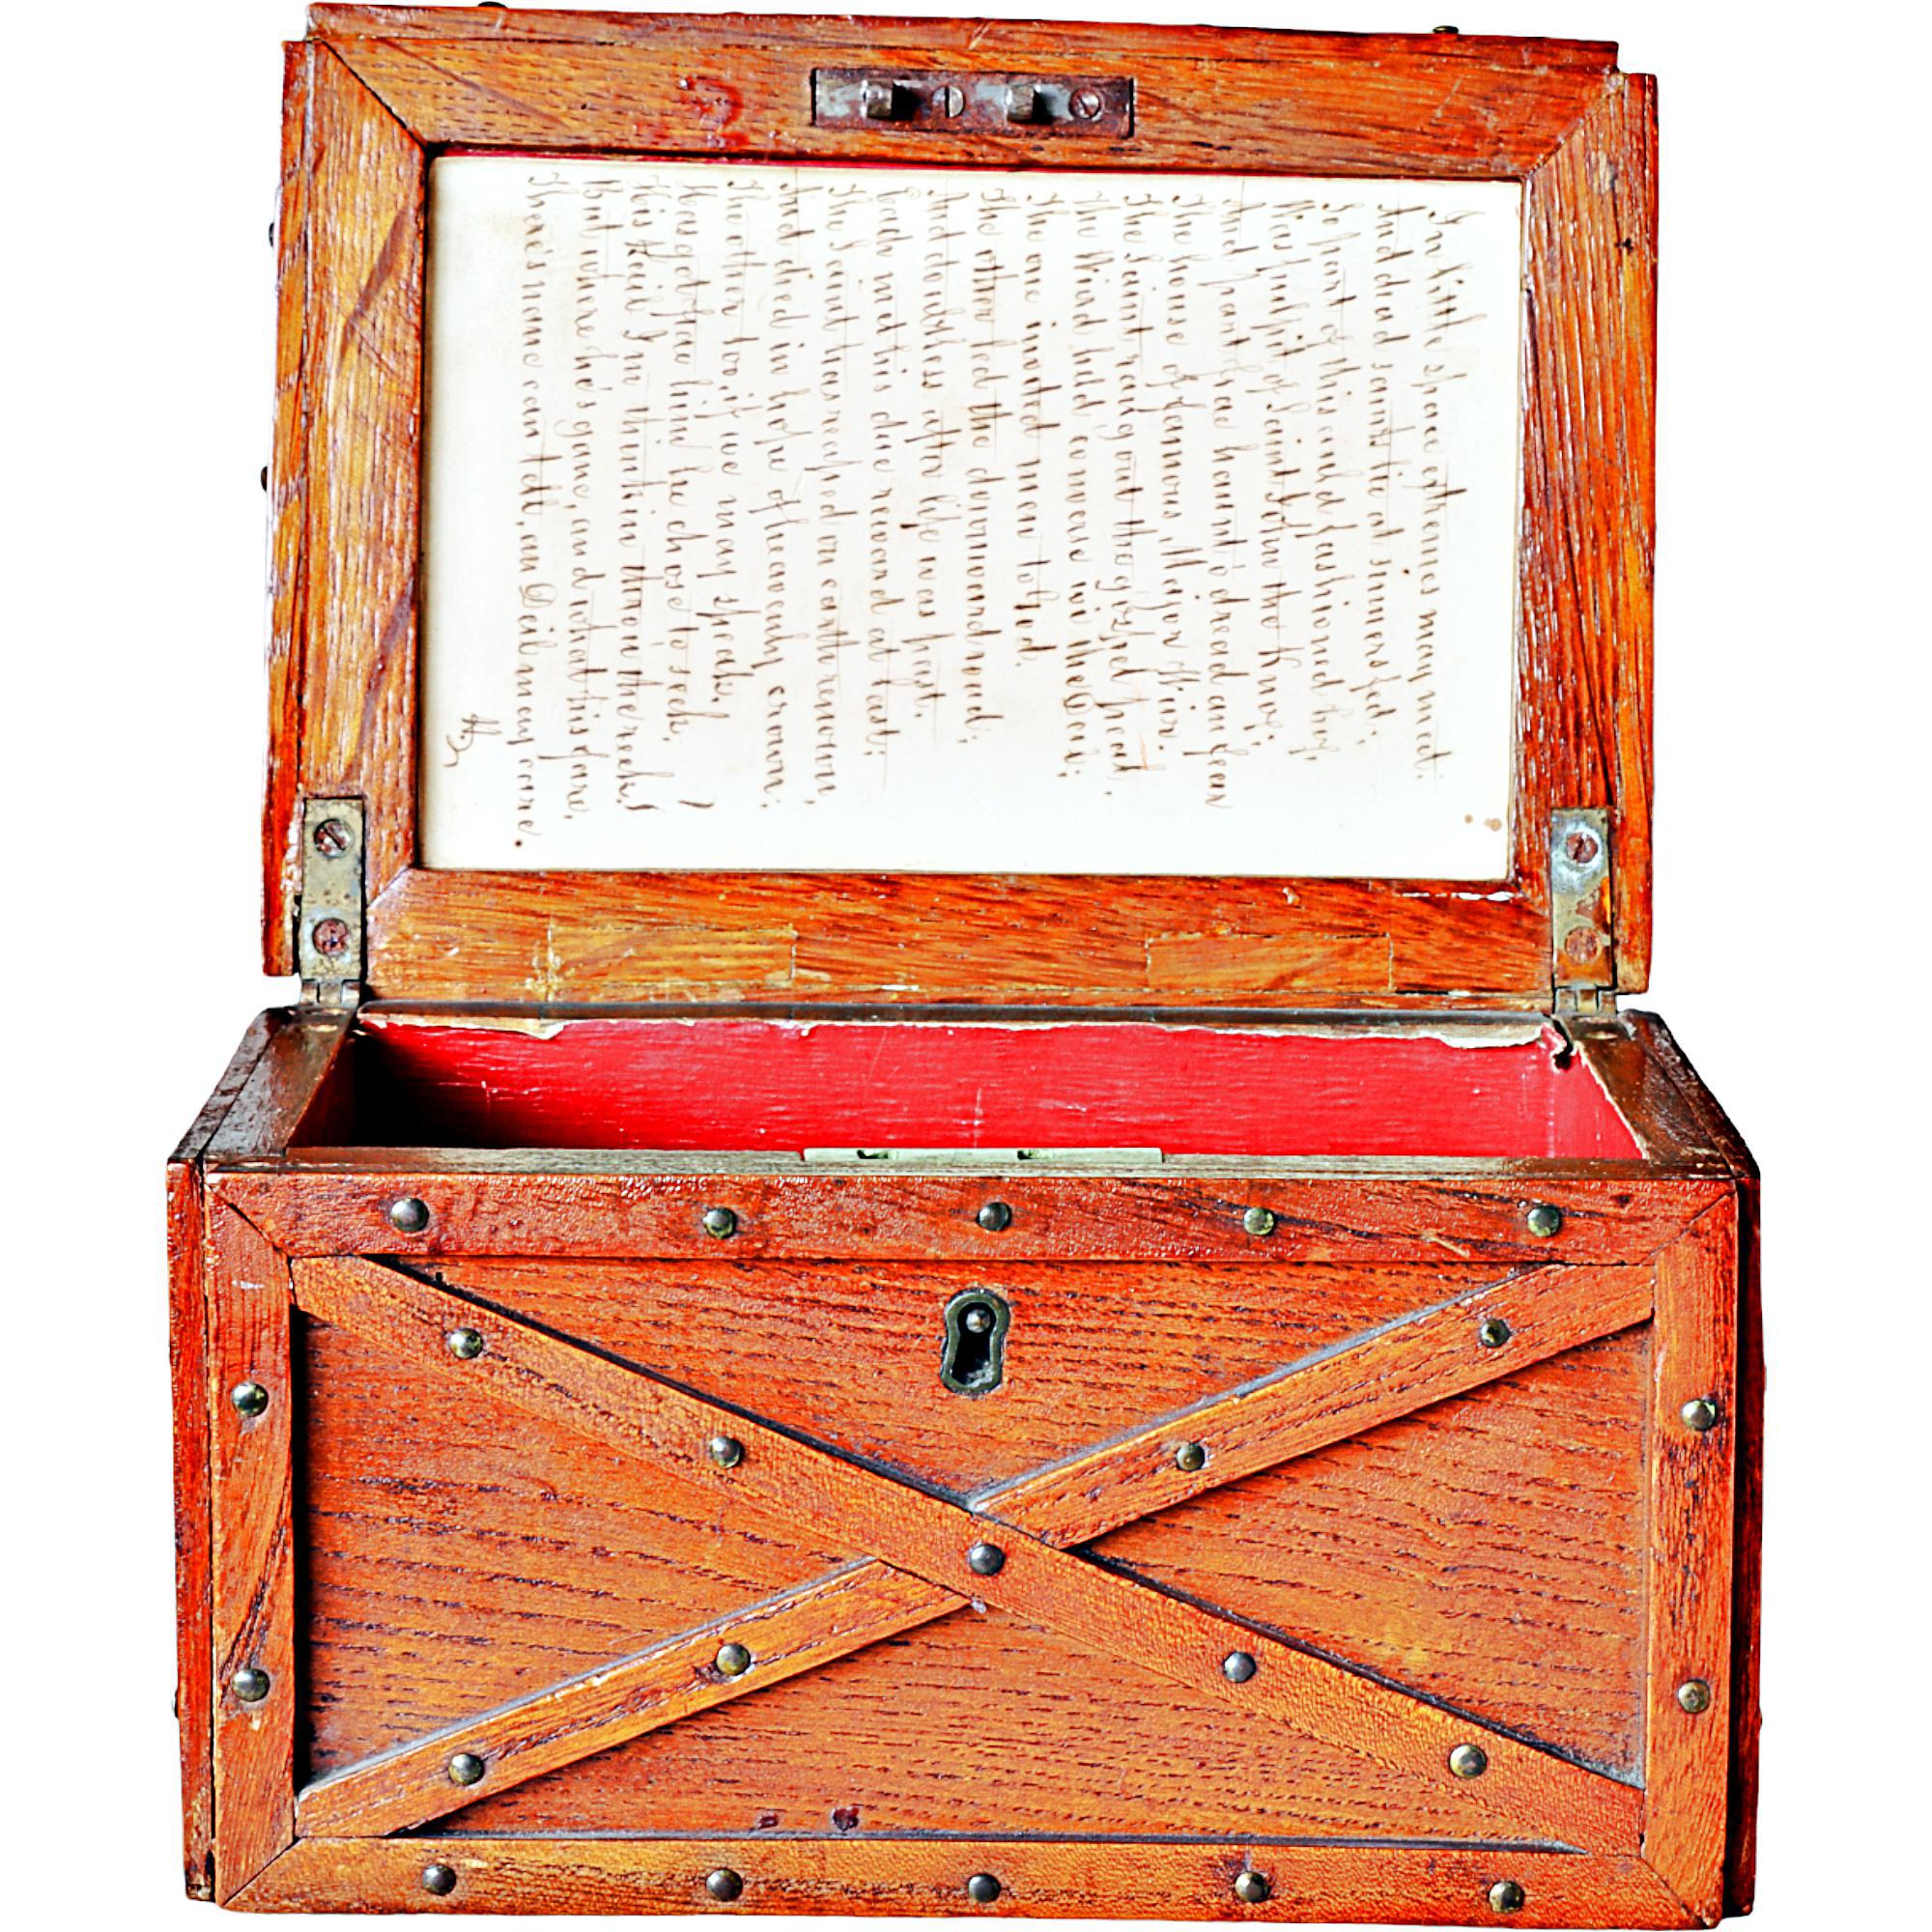 In little space extremes may meet.
And dead saints lie at sinners feet,
So part of this auld fashioned box,
Was pulpit of Saint John the Knox;
And part frae haunt o' dread an fear
The house of famous Major Weir.
The Saint rang out the gospel head,
The Wiard held converse wi' the Deil;
The one invoked men to God,
The other led the downward road;
And doubtless after life was past,
Each met his due reward at last;
The Saint has reaped on earth renown,
And died in hope of heavenly crown;
The other too, if we may speak,
Has got frae him he chose to seek;
His Hail I'm thinkin throw the reek!
But where he's gane, and what his fare,
There's nane can tell, an Deil may care.